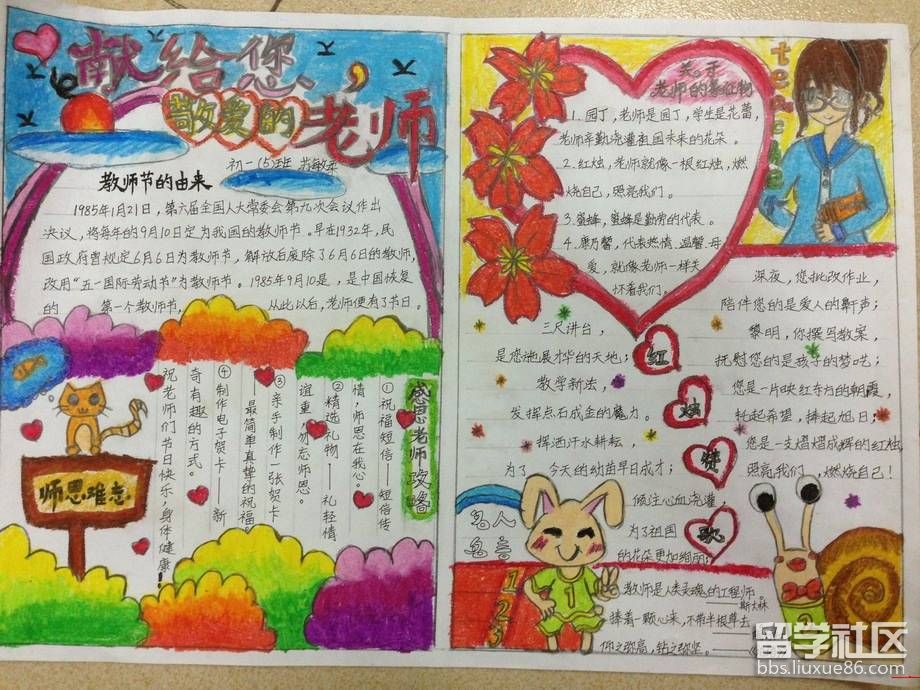 献给您、
敬爱的老师
初一(5)班
教师节的由来
1985年1月21日，第六届全国人大常委会第九次会议作出
决议，将每年的9月10日定为我国的教师节。早在1932年，民
国政府曾规定6月6日为教师节，解放后废除了6月6日的教师节，
改用“五一国际劳动节”为教师节。1985年9月10是，是中国恢复
的 第一个教师节， 从此以后，老师便有了节日。
感恩老师攻略
①祝福短信——短信传
情，师恩在我心。
②精选礼物——礼轻情
谊重，勿忘师恩。
③亲手制作一张贺卡
——最简单真挚的祝福
④制作电子贺卡——新
奇有趣的方式。
祝老师们节日快乐，身体健康！
师恩难忘
关于
老师的象征物
1.园丁，老师是园丁，学生是花蕾，
老师辛勤浇灌祖国未来的花朵。
2.红烛，老师就像一根红烛，燃
烧自己，照亮我们。
3.蜜蜂，蜜蜂是勤劳的代表。
4.康乃馨，代表热情 温馨 母
爱，就像老师一样关
怀着我们。
teacher
红烛赞歌
三尺讲台，
是您施展才华的天地；
教学新法，
发挥点石成金的魔力。
挥洒汗水耕耘，
为了 今天的幼苗早日成才；
倾注心血浇灌，
为了祖国
的花朵更加绚丽；
深夜，您批改作业，
陪伴您的是爱人的鼾声；
黎明，你撰写教案，
抚慰您的是孩子的梦呓；
您是一片映红东方的朝霞，
托起希望，捧起旭日；
您是一支熠熠成辉的红烛，
照亮我们，燃烧自己！
名人
名言
1
2
3
1
教师是人类灵魂的工程师。
——斯大林
捧着一颗心来，不带半根草去
仰之弥高，钻之弥坚。
留学社区
bbs.liuxue86.com